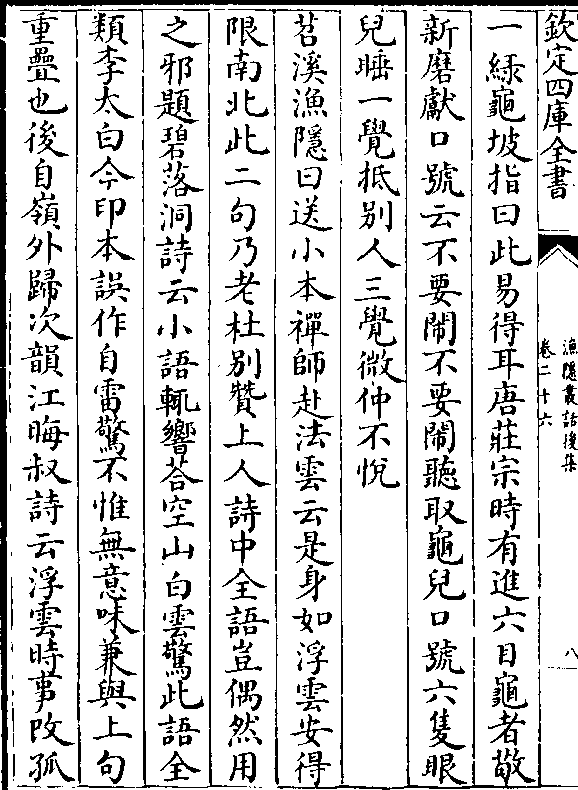 欽定四庫全書
漁隱叢話後集
卷二十六
八
一綠龜坡指曰此易得耳唐莊宗時有進六目龜者敬
新磨獻口號云不要鬧不要鬧聽取龜兒口號六隻眼
兒睡一覺抵别人三覺微仲不悅
苕溪漁隱曰送小本禪師赴法雲云是身如浮雲安得
限南北此二句乃老杜别贊上人詩中全語豈偶然用
之邪題碧落洞詩云小語輒響荅空山白雲驚此語全
類李太白今印本誤作自雷驚不惟無意味兼與上句
重疊也後自嶺外歸次韻江晦叔詩云浮雲時事改孤